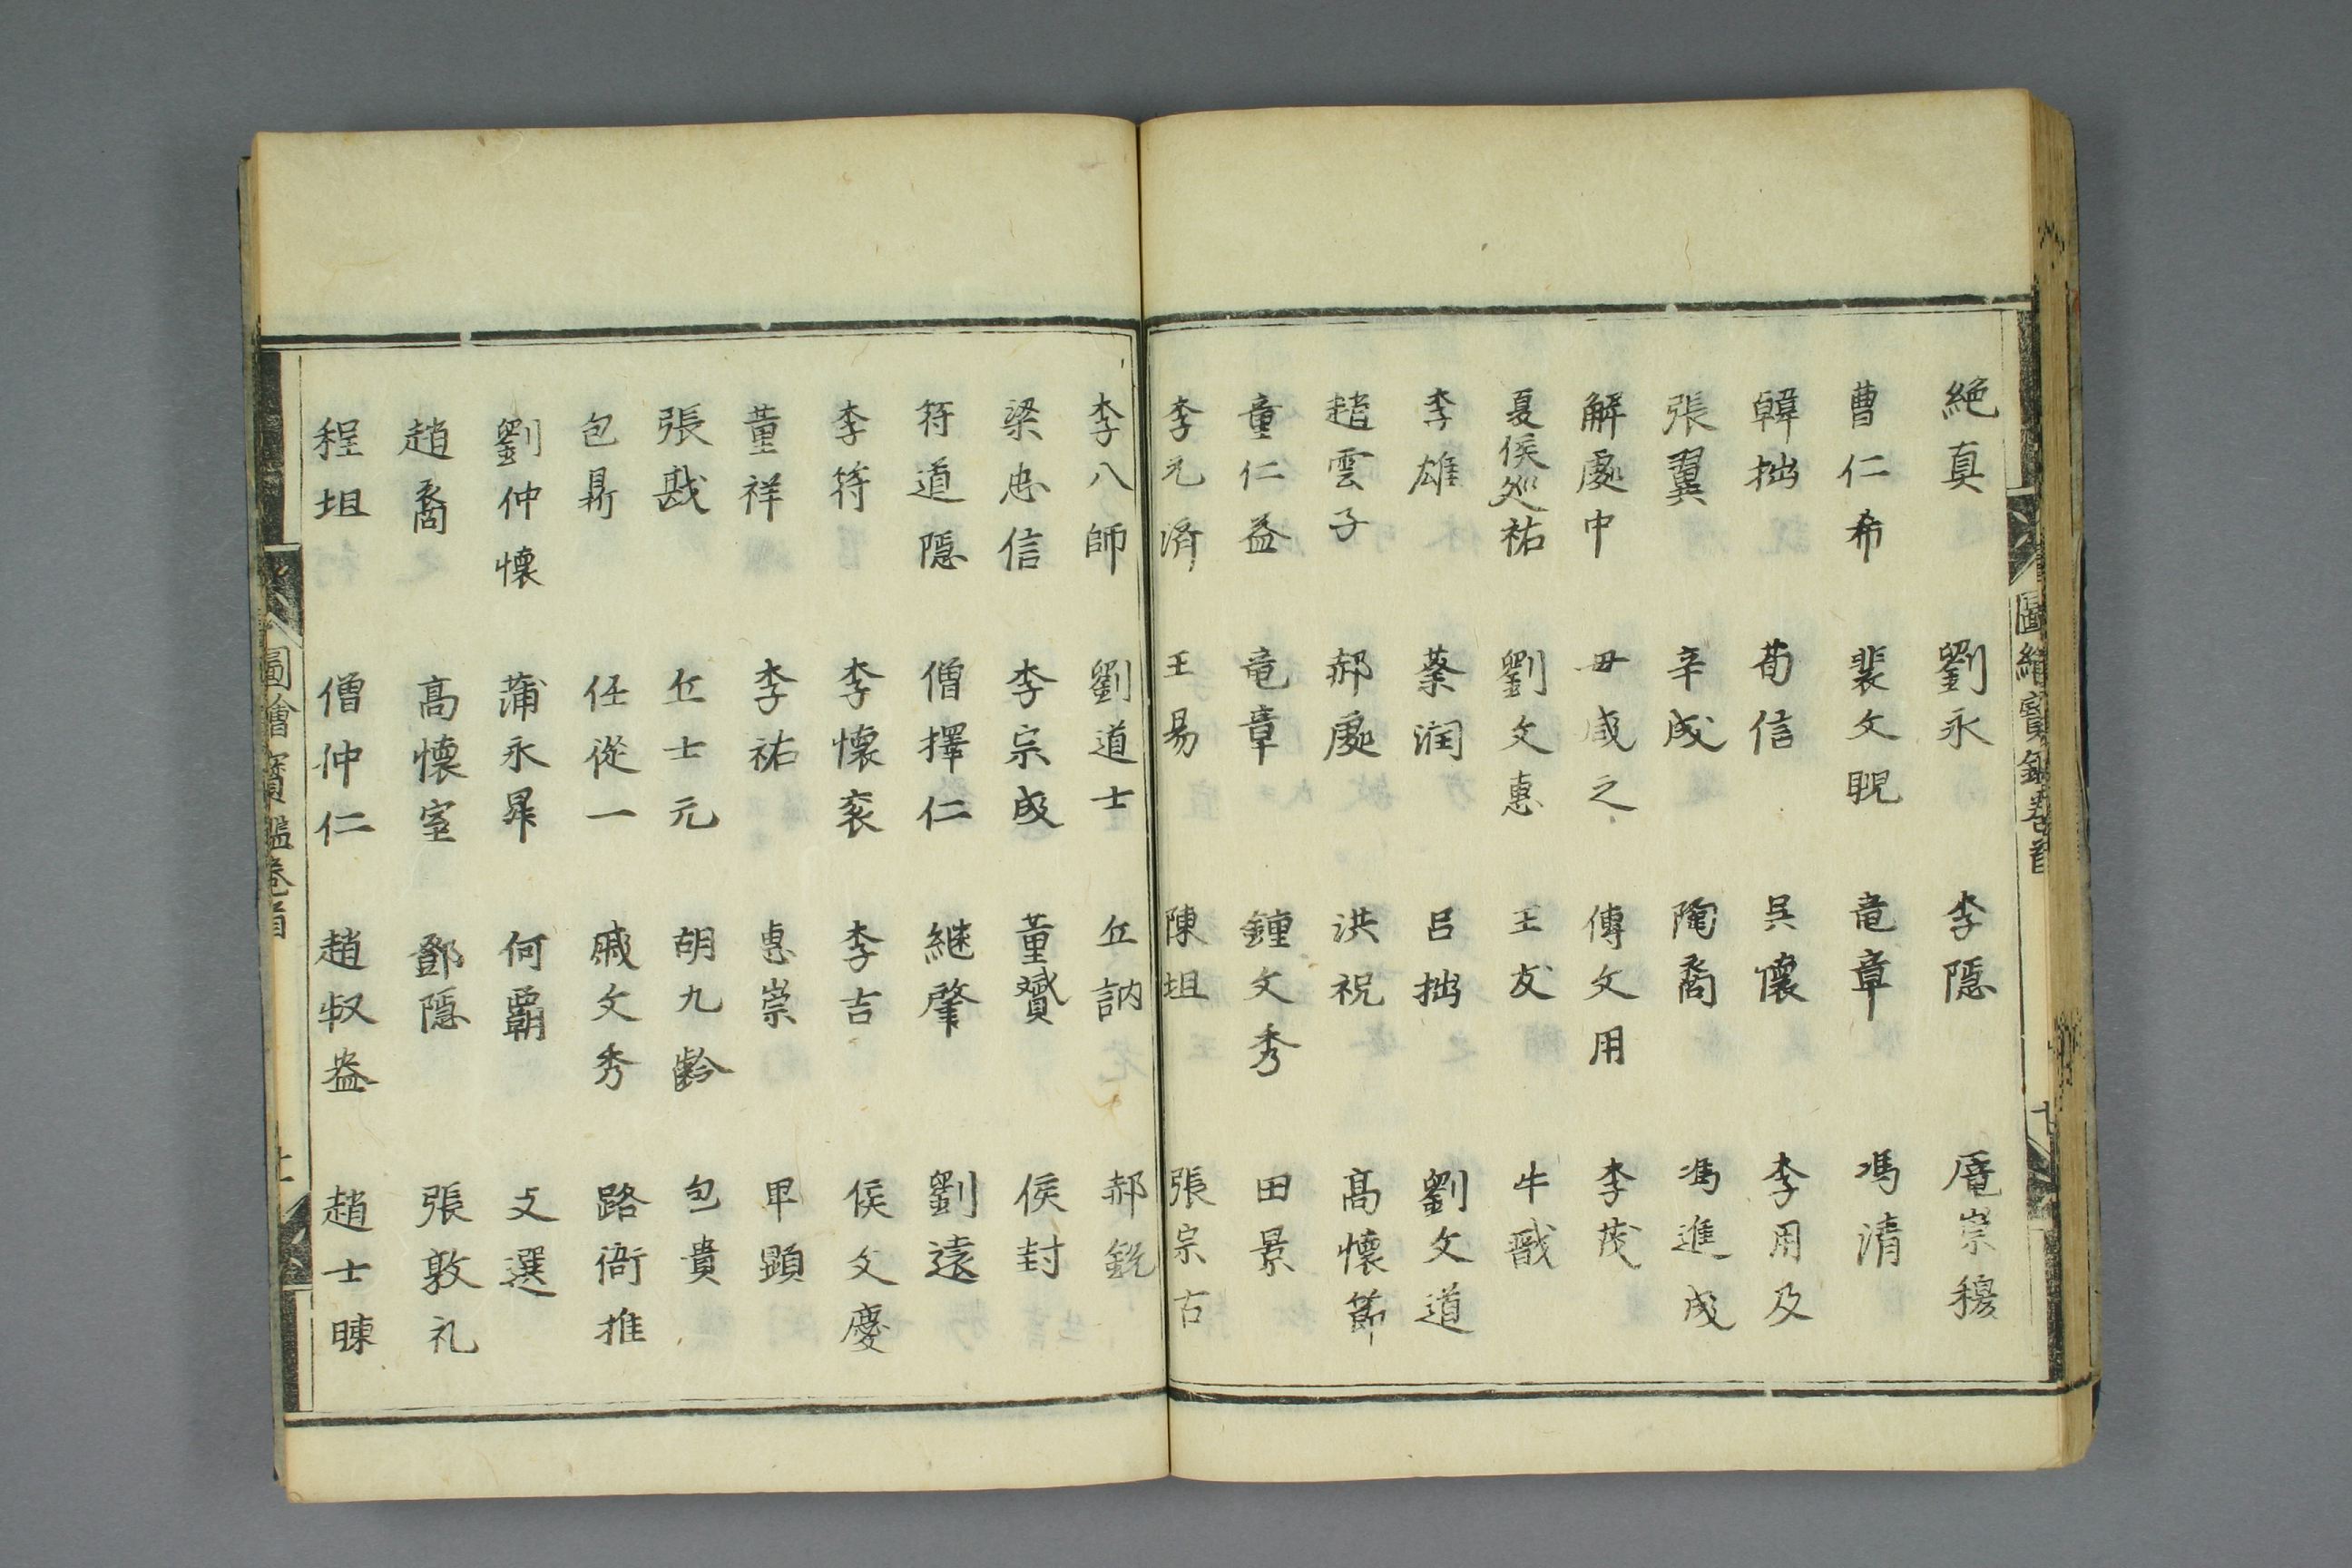 絶真 劉永 李隠 厖崇穆
曹仁希 裴文睍 竜章 馮清
韓拙 荀信 吴懷 李用及
張翼 辛成 陶裔 馮進成
解處中 毋咸之 傅文用 李茂
夏侯処祐 劉文惠 王友 牛戩
李雄 蔡润 呂拙 劉文道
趙雲子 郝處 洪祝 髙懷節
童仁益 竜章 鍾文秀 田景
李元济 王易 陳坦 張宗古
圖繪寳鑑卷首
李八師 劉道士 丘訥 郝銳
梁忠信 李宗成 董贇 侯封
符道隠 僧擇仁 継肇 劉遠
李符 李懷衮 李吉 侯文慶
董祥 李祐 惠崇 甲顕
張戡 丘士元 胡九齡 包貴
包鼎 任從一 戚文秀 路衙推
劉仲懷 蒲永昇 何覇 文選
趙裔 髙懷室 鄧隠 張敦礼
程坦 僧仲仁 趙叔盎 趙士暕
圖繪寳鑑卷首